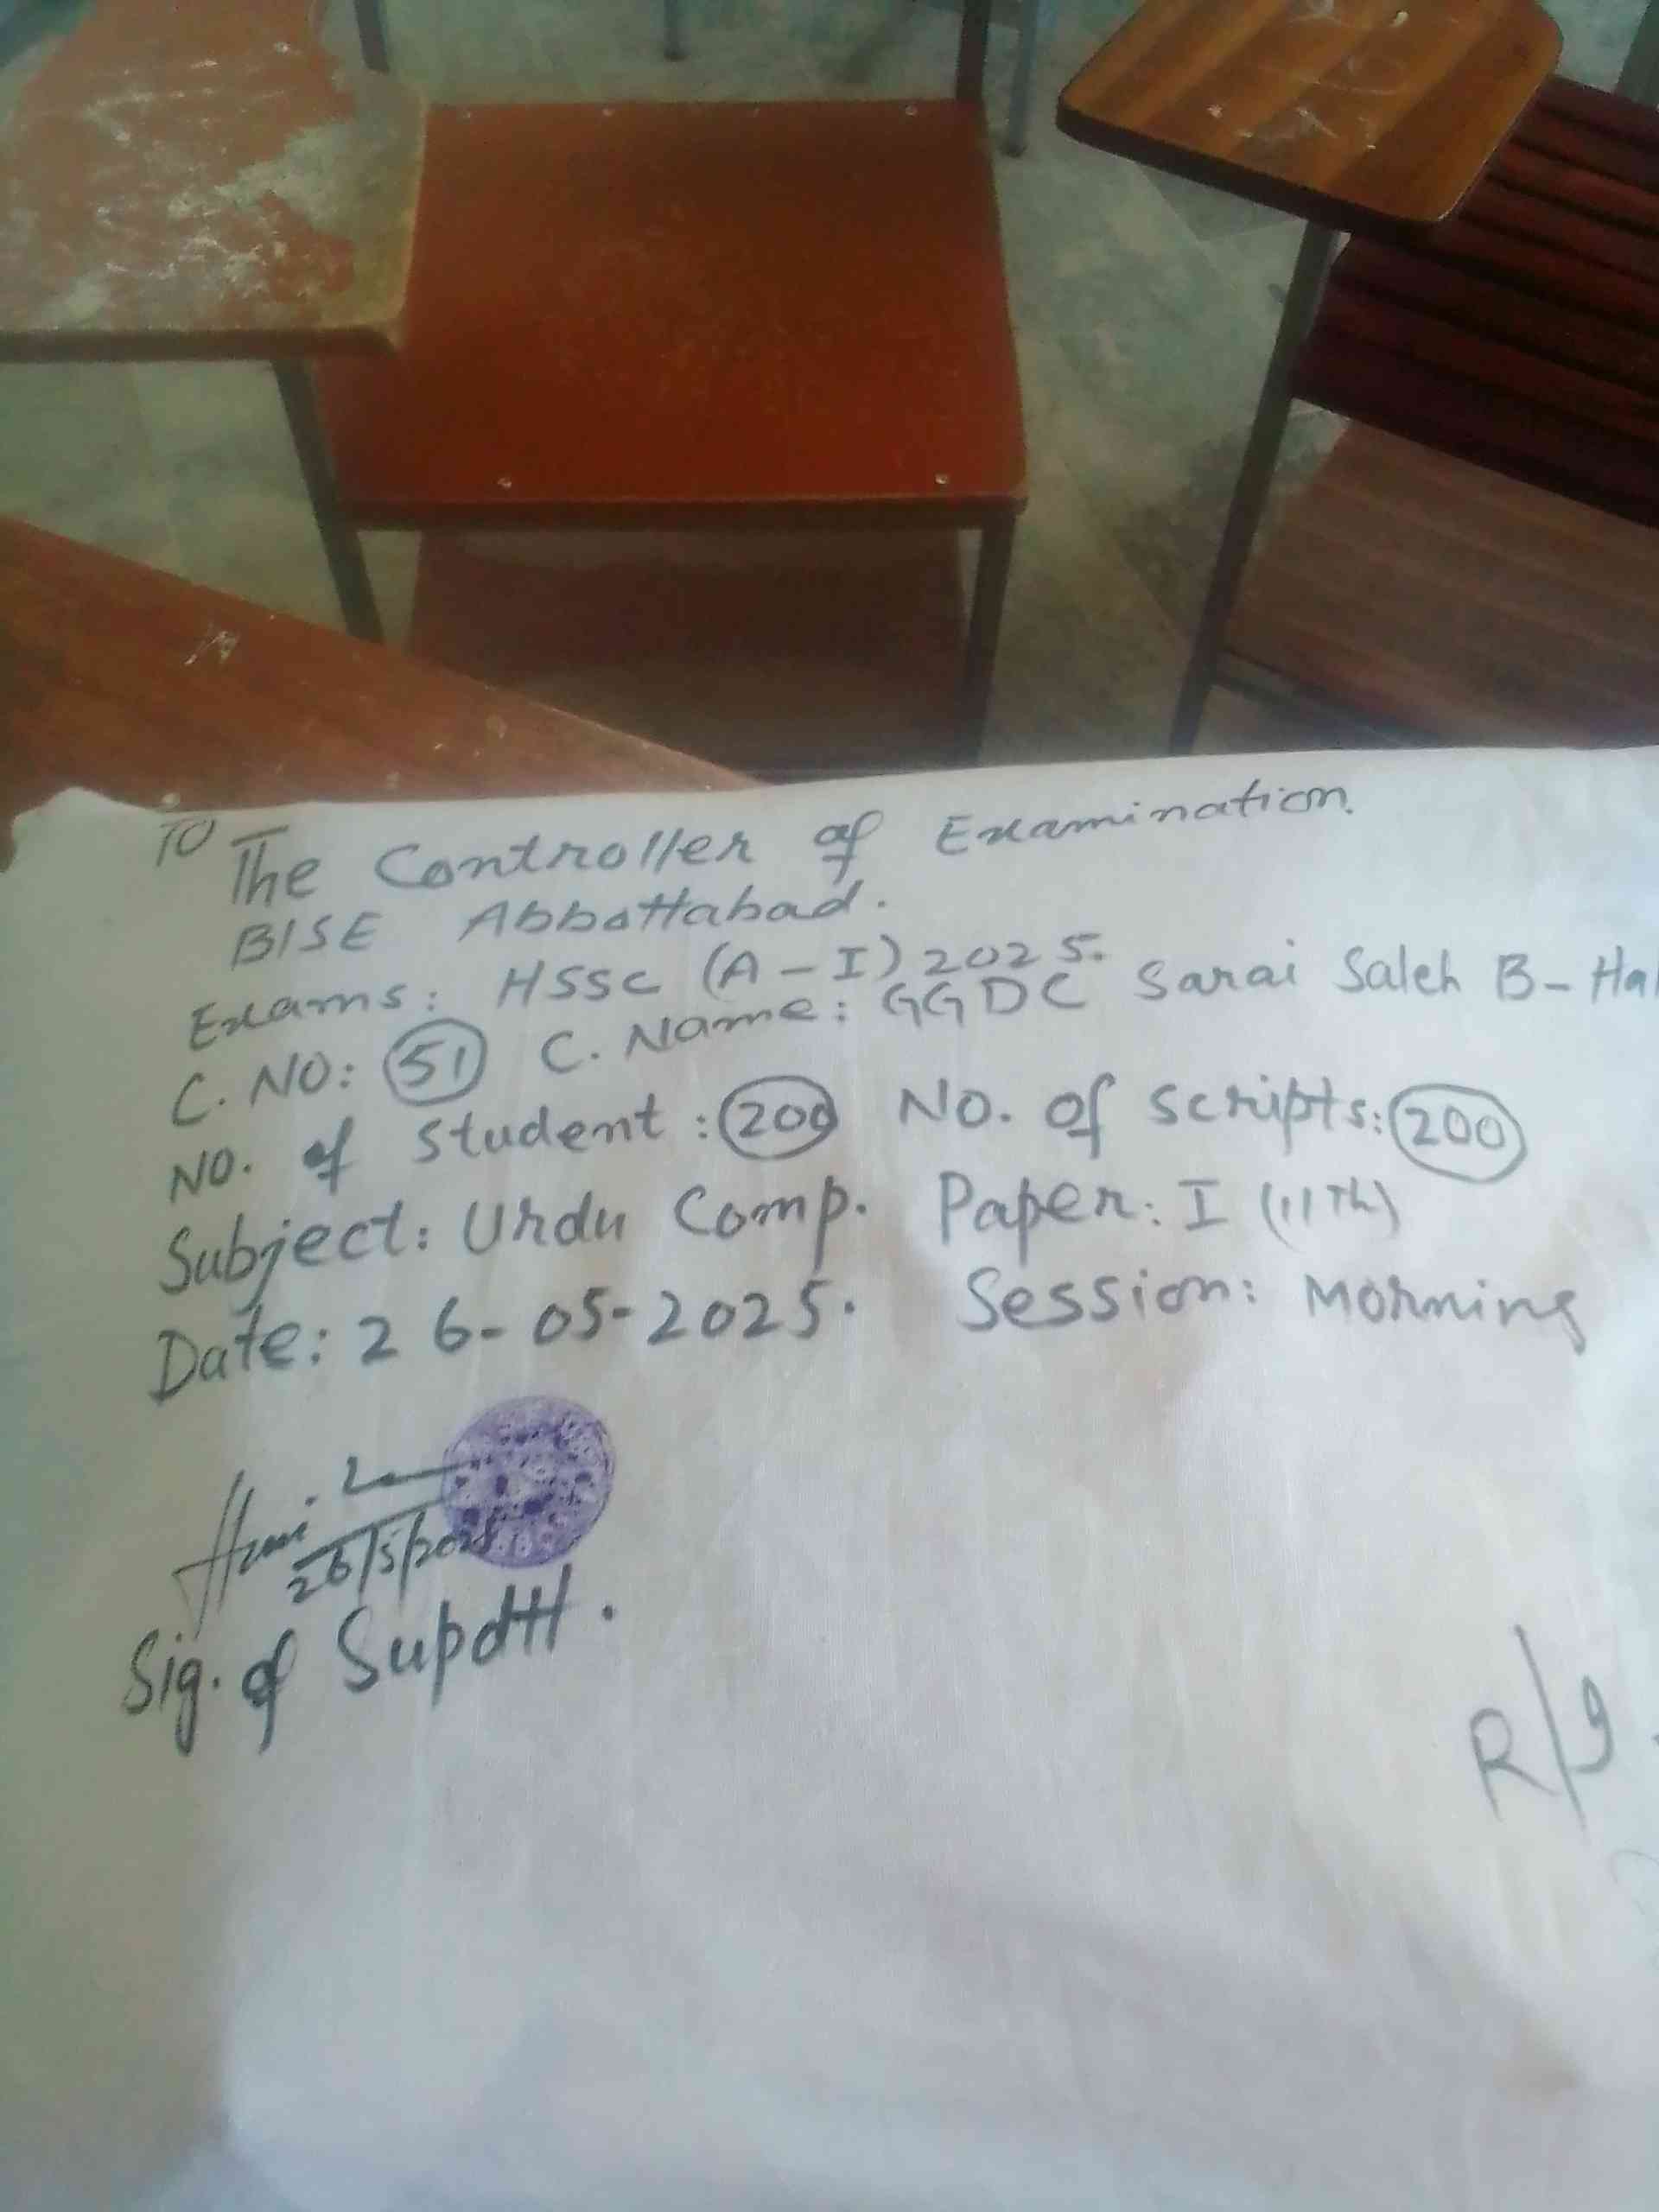 TO
The Controller of Examination.
BISE Abbottabad.
Exams: HSSC (A-I) 2025.
C. NO: 51 C. Name: GGDC Sarai Saleh B-Ha
NO. of Student: 200 No. of Scripts: 200
Subject: Urdu Comp. Paper: I (11Th)
Date: 26-05-2025. Session: Morning
26/5/2025
Sig. of Supdtt.
R/9